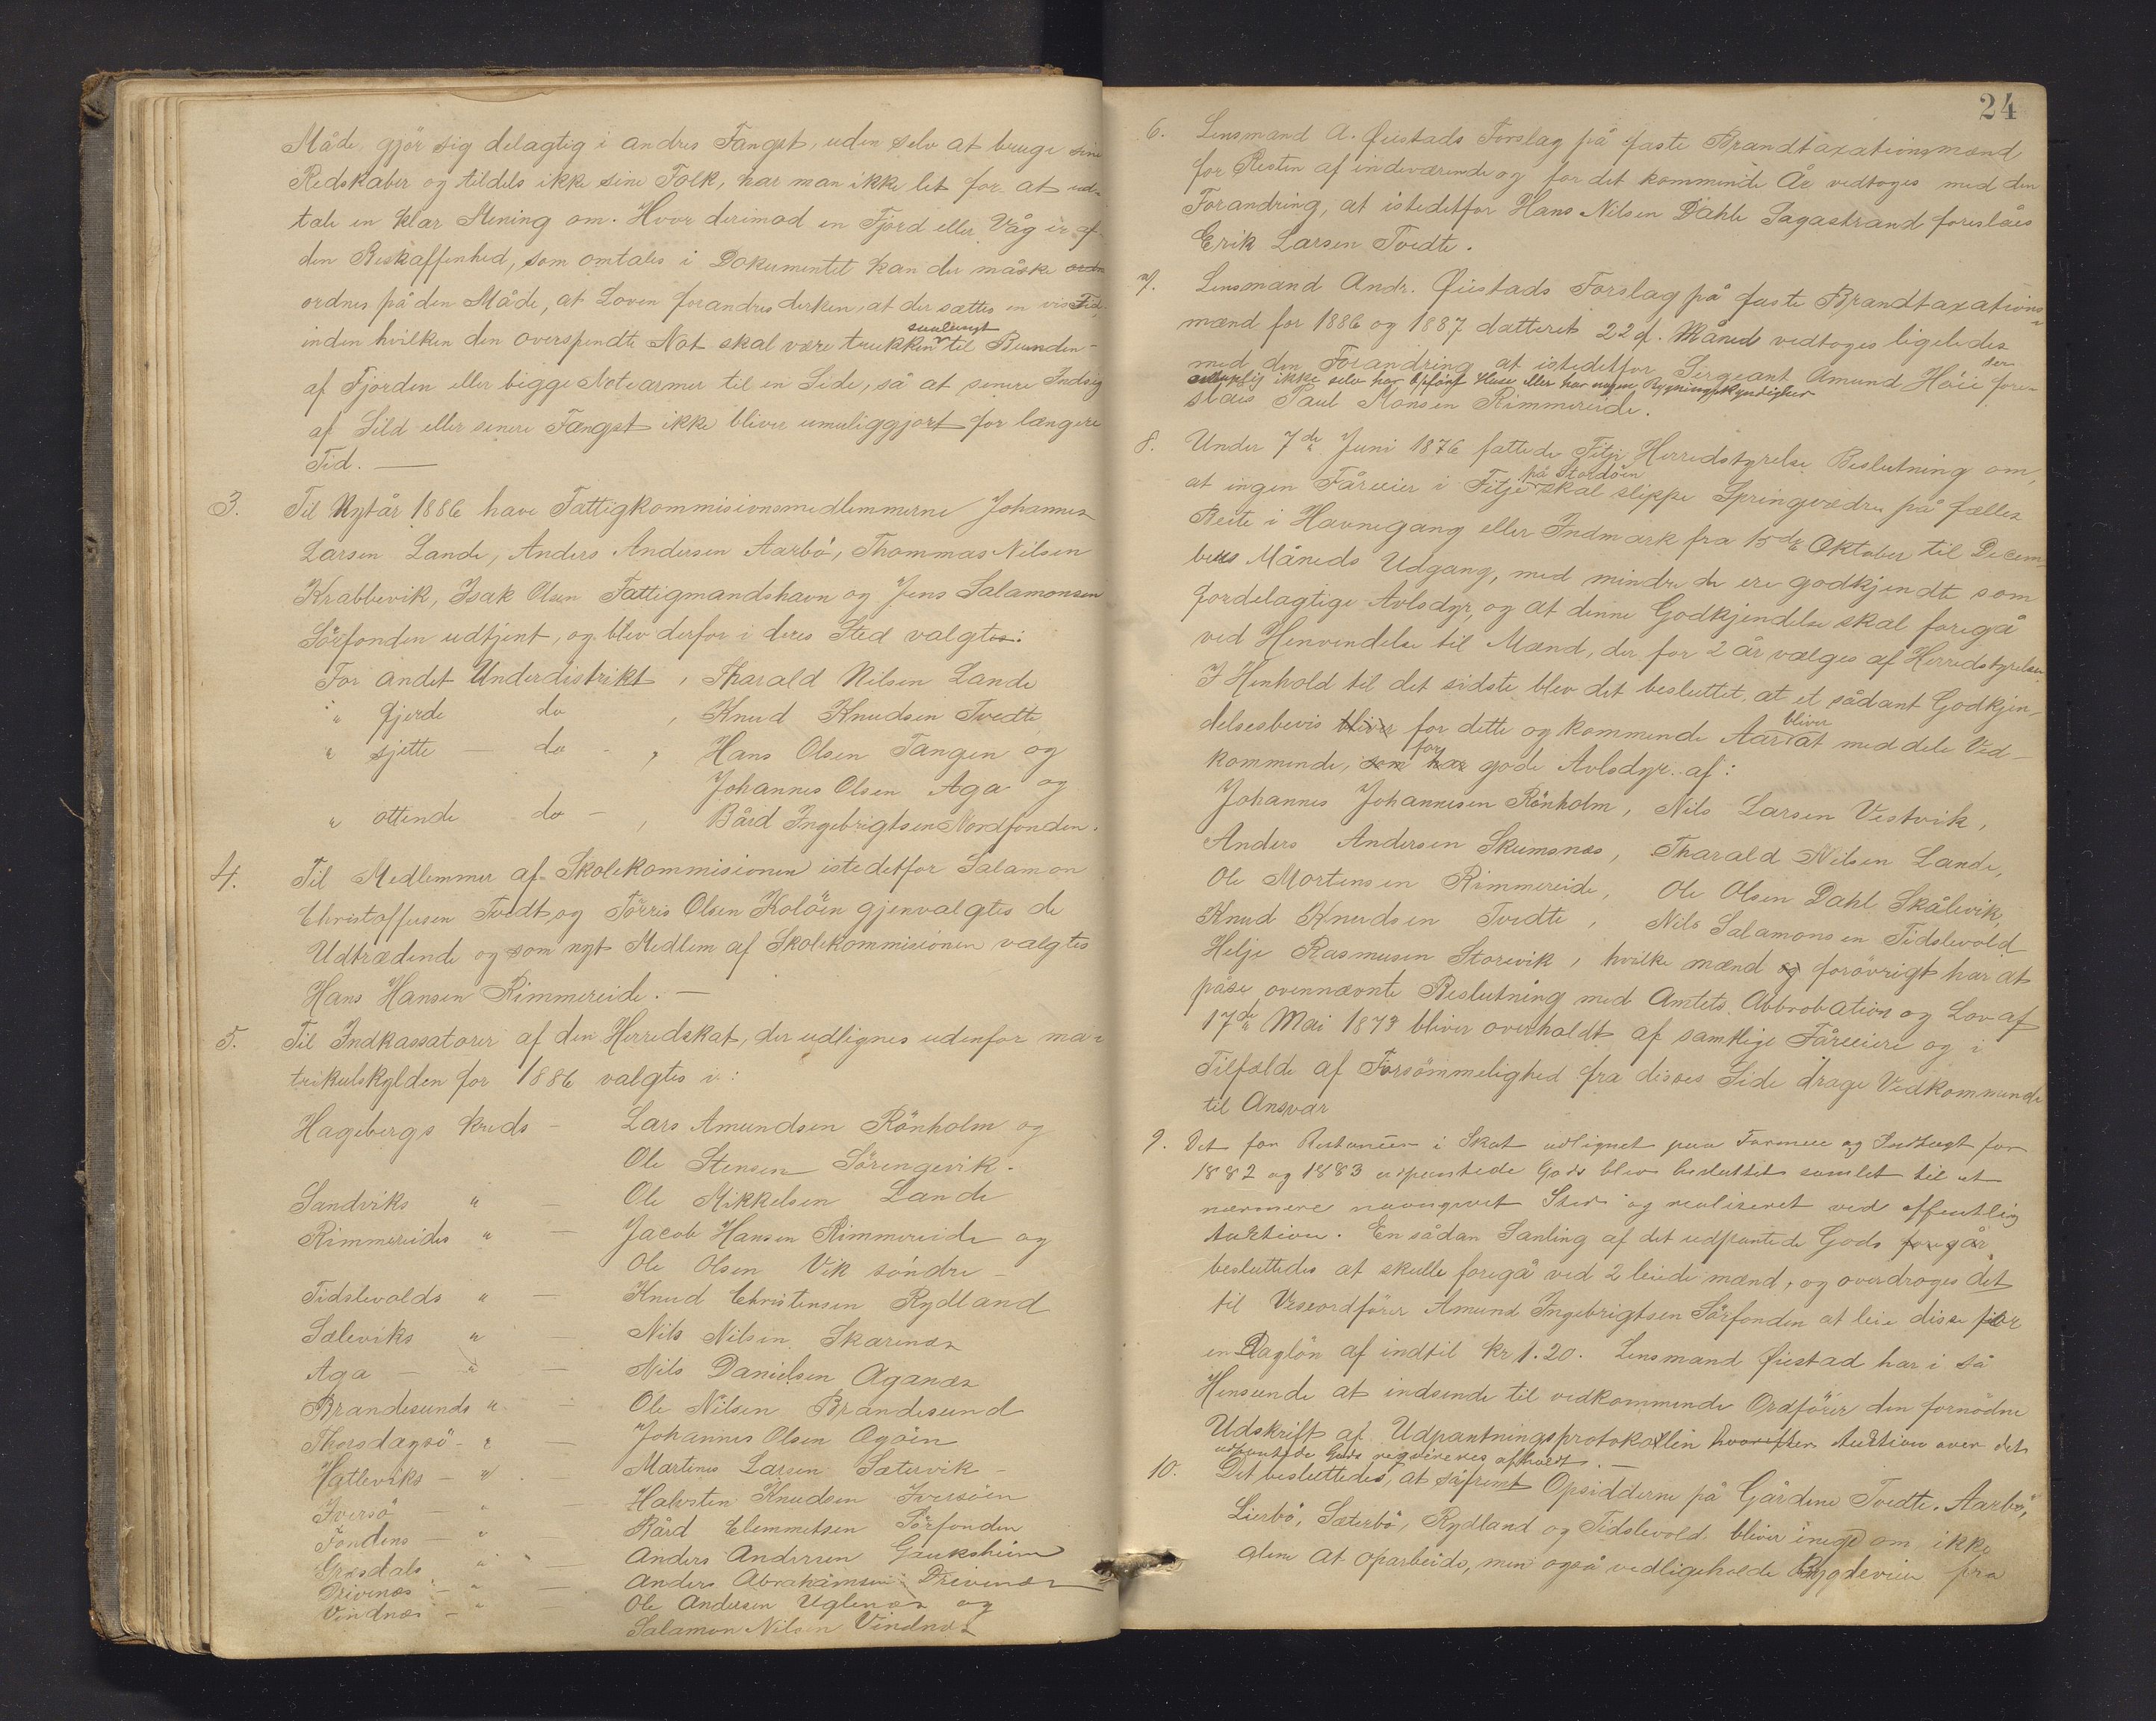 Måde, gjör sig delagtig i andres Fangst, uden selv at bruge sine
Redskaber og tildels ikke sine Folk, har man ikke let for at ud-
tale en klar Mening om. Hvor derimod en Fjord eller Våg er af
den Beskaffenhed, som omtales i Dokumentet kan der måske
ordnes på den Måde, at Loven forandres derhen, at der sættes en vis Tid,
saalangt
inden hvilken den overspendte Not skal være trukken til Bunden
af Fjorden eller begge Notearmer til en Side, så at senere Indsig
af Sild eller senere Fangst ikke bliver umuliggjort for længere
Tid. —
3. Til Nytår 1886 have Fattigkommisionsmedlemmerne Johannes
Larsen Lande, Anders Andersen Aarbö, Thommas Nilsen
Krabbevik, Isak Olsen Fattigmandshavn og Jens Salamonsen
Sörfonden udtjent, og blev derfor i deres Sted valgtes:
For andet Underdistrikt, Tharald Nilsen Lande
" fjerde do , Knud Knudsen Tvedte
" sjette — do - , Hans Olsen Tangen og
Johannes Olsen Aga og
" ottende do - , Bård Ingebrigtsen Nordfonden.
4. Til Medlemmer af Skolekommisionen istedetfor Salamon
Christoffersen Tvedt og Törris Olsen Kolöen gjenvalgtes de
Udtrædende og som nyt Medlem af Skolekommisionen valgtes
Hans Hansen Rimmereide. —
5. Til Indkassatorer af den Herredskat, der udlignes udenfor ma-
trikulskylden for 1886 valgtes i:
Hagebergs kreds - Lars Amundsen Rönholm og
Ole Stensen Söringevik.
Sandviks " — Ole Mikkelsen Lande
Rimmereides " — Jacob Hansen Rimmereide og
Ole Olsen Vik söndre —
Tidslevolds " — Knud Christensen Rydland
Sæleviks " — Nils Nilsen Skarenæs
Aga — " — Nils Danielsen Aganæs
Brandesunds " — Ole Nilsen Brandesund
Thorsdagsö - " — Johannes Olsen Ögöen
Hatleviks — " — Martines Larsen Sætervik —
Iversö — " — Halvsten Knudsen Iversöen
Fondens — " Bård Clemmetsen Sörfonden
" — Anders Andersen Gaukshiim
Drivenæs — " — Anders Abrahamsen Drivenæs
Vindnæs — " — Ole Andersen Uglenæs og
Salamon Nilsen Vindnæs
24
6. Lensmand A. Øiestads Forslag på faste Brandtaxationsmænd
for Resten af indeværende og for det kommende År vedtoges med den
Forandring, at istedetfor Hans Nilsen Dåhle Sagastrand foreslåes
Erik Larsen Tvedte.
7. Lensmand Andr. Øiestads Forslag på faste Brandtaxations-
mænd for 1886 og 1887 datteret 22 d. Måned vedtoges ligeledes
med den Forandring at istedetfor Sergeant Amund Höie fore-
der
ikke selv har opfört Huse eller har nogen Bygningskyndighed
slåes Paul Monsen Rimmereide.
8. Under 7de Juni 1876 fattede Fitje Herredstyrelse Beslutning om,
på Stordöen
at ingen Fåreeier i Fitje skal slippe Springvædre på fælles
Beite i Havnegang eller Indmark fra 15de Oktober til Decem-
bers Måneds Udgang, med mindre de ere godkjendte som
fordelagtige Avlsdyr, og at denne Godkjendelse skal foregå
ved Henvendelse til Mænd, der for 2 år vælges af Herredstyrelsen.
I Henhold til det sidste blev det besluttet, at et sådant Godkjen-
bliver
delsesbevis bliver for dette og kommende Aar at meddele Ved-
for
kommende, som har gode Avlsdyr. af:
Johannes Johannesen Rönholm, Nils Larsen Vestvik,
Anders Andersen Skumsnes, Tharald Nilsen Lande,
Ole Mortensen Rimmereide, Ole Olsen Dahl Skålevik,
Knud Knudsen Tvedte, Nils Salamonsen Tidslevold
Helje Rasmusen Storevik, hvilke mænd og forövrigt har at
påse ovennævnte Beslutning med Amtets Abbrobation og Lov af
17de Mai 1873 bliver overholdt af samtlige Fåreeiere og i
Tilfælde af Forsömmelighed fra disses Side drage Vedkommende
til Ansvar
9. Det for Restancer i Skat udlignet paa Formue og Indtægt for
1882 og 1883 udpantede Gods blev besluttet samlet til et
nærmere navngivet Sted og realiseret ved offentlig
Auktion. En sådan Samling af det udpantede Gods foregår
besluttedes at skulle foregå ved 2 leiede mænd, og overdroges det
til Viseordförer Amund Ingebrigtsen Sörfonden at leie disse for
en Daglön af indtil Kr 1.20. Lensmand Øiestad har i så
Henseende at indsende til vedkommende Ordförer den fornödne
Udskrift af Udpantningsprotokollen hvorefter Auktion over det
udpantede Gods reqvireres afholdt. —
10. Det besluttedes, at såfremt Opsidderne på Gårdene Tvedte, Aarbö,
Lierbö, Sæterbö, Rydland og Tidslevold bliver enige om ikke
alene at oparbeide, men også vedligeholde Bygdeveien fra